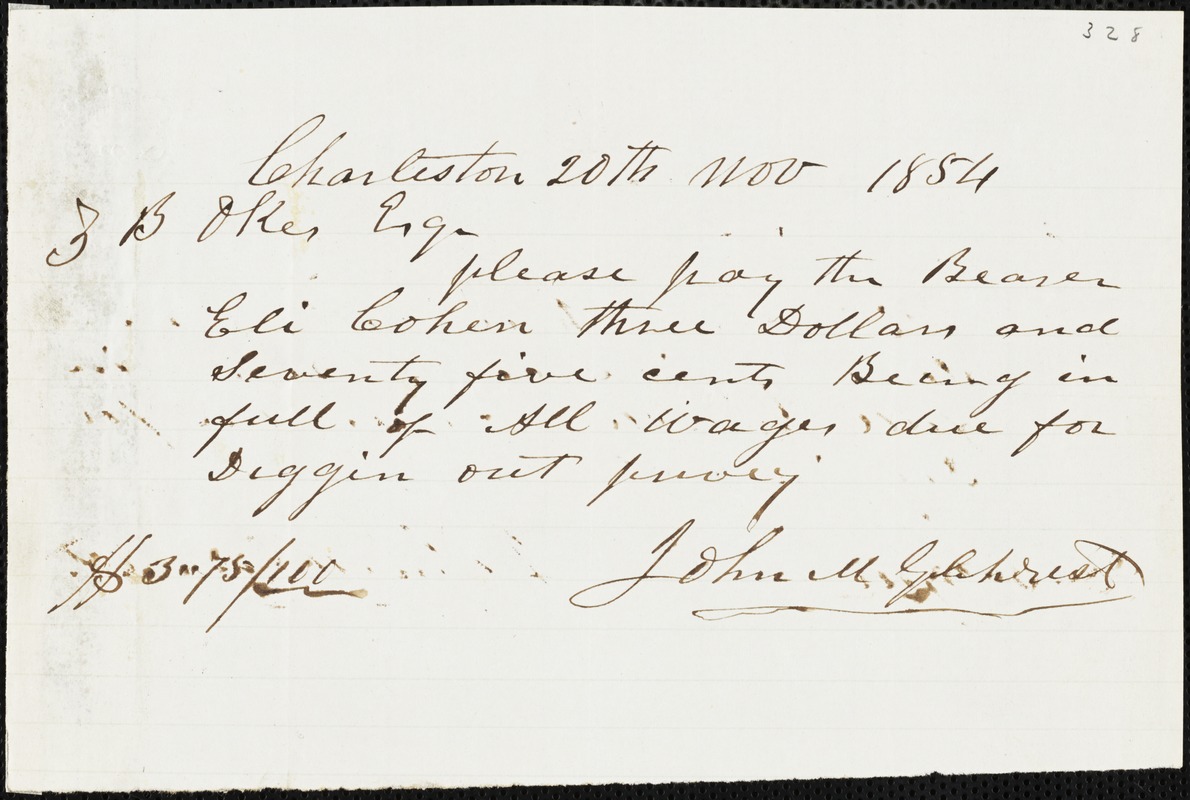 328
Charleston 20th Nov 1854
Z B Okes Esqr
please pay the Bearer
Eli Cohen three Dollars and
Seventy five cents Being in
full of All Wages due for
Diggin out privey
$ 3"75/100
John M Gilchrist